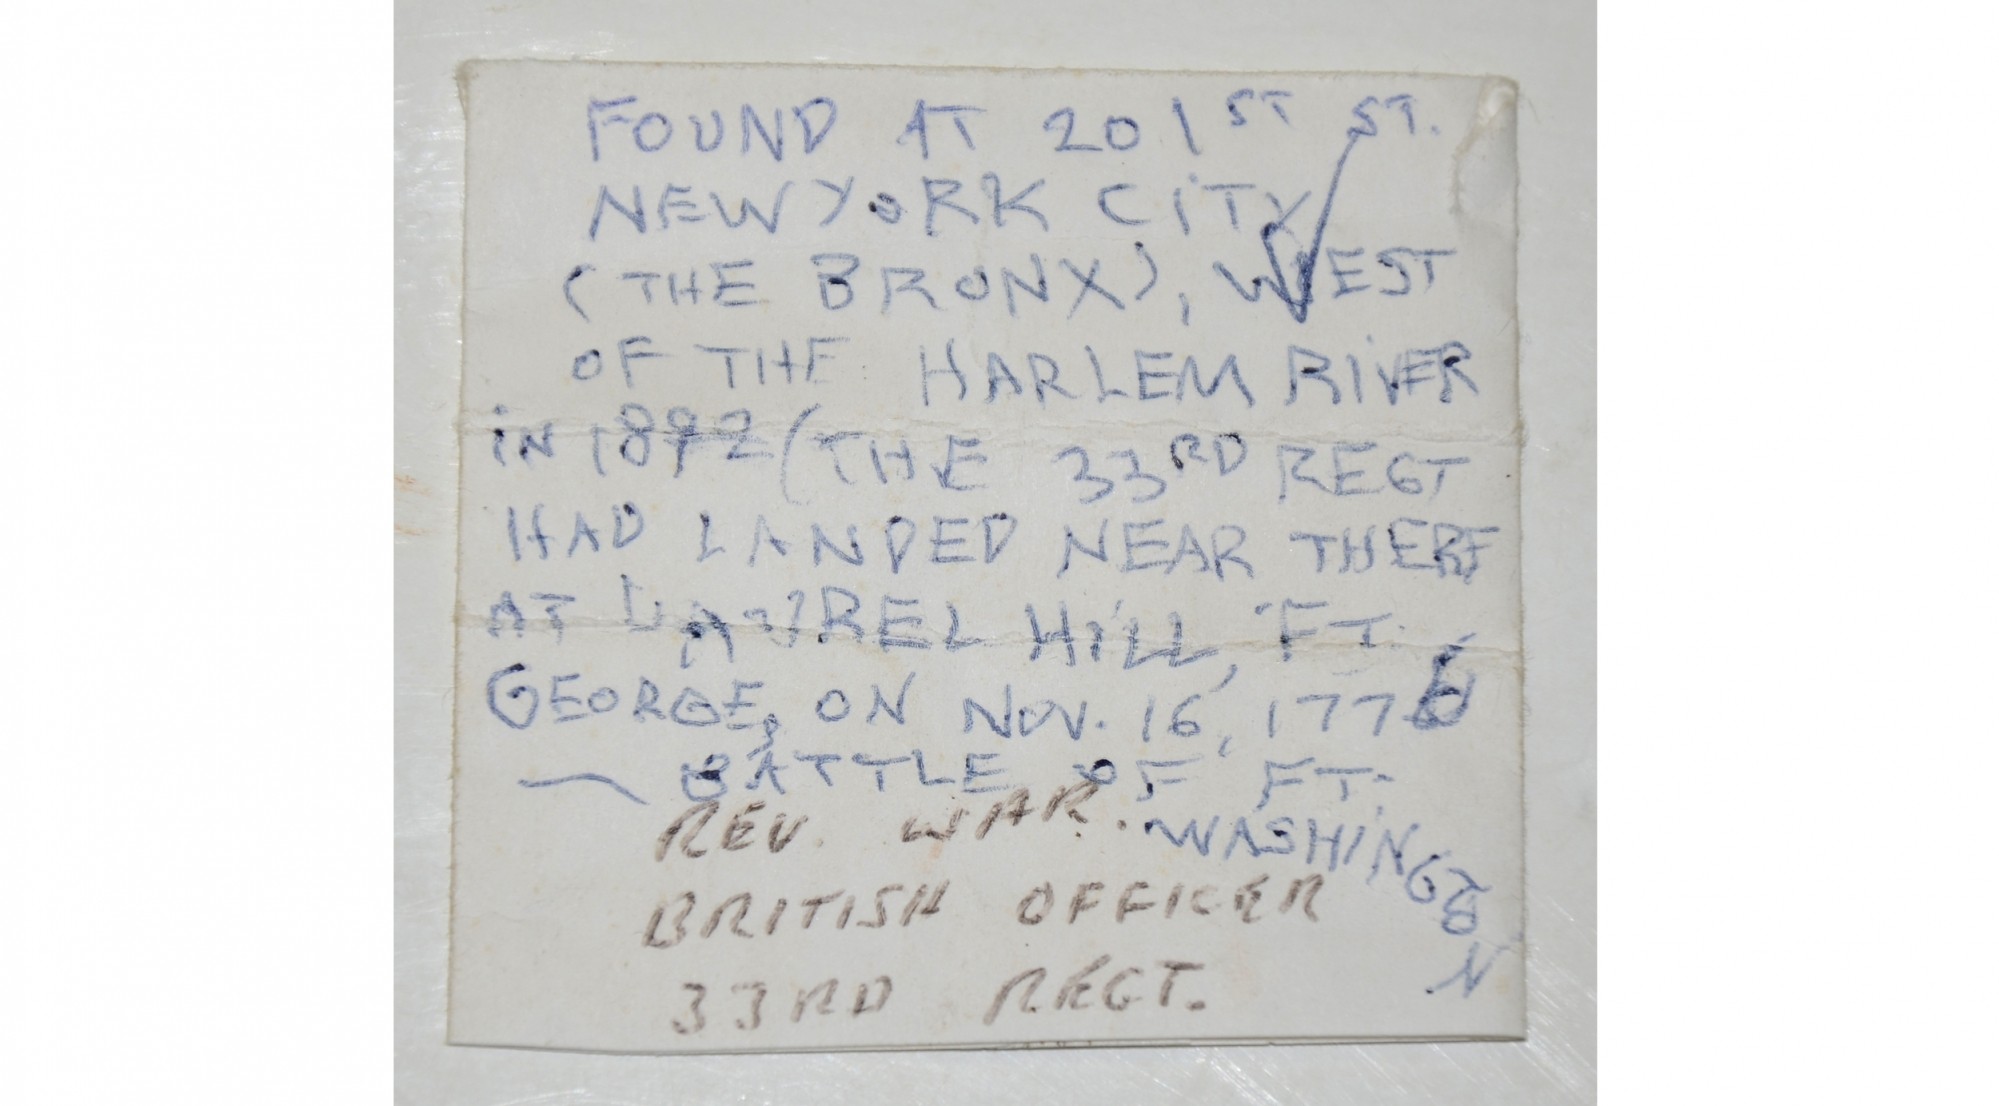 FOUND AT 201ST ST.
NEW YORK CITY
(THE BRONX), WEST
OF THE HARLEM RIVER
IN 1892 (THE 33RD REGT
HAD LANDED NEAR THERE
AT LAUREL HILL, FT.
GEORGE, ON NOV. 16, 1776
— BATTLE OF FT.
WASHINGTON
REV. WAR.
BRITISH OFFICER
33RD REGT.